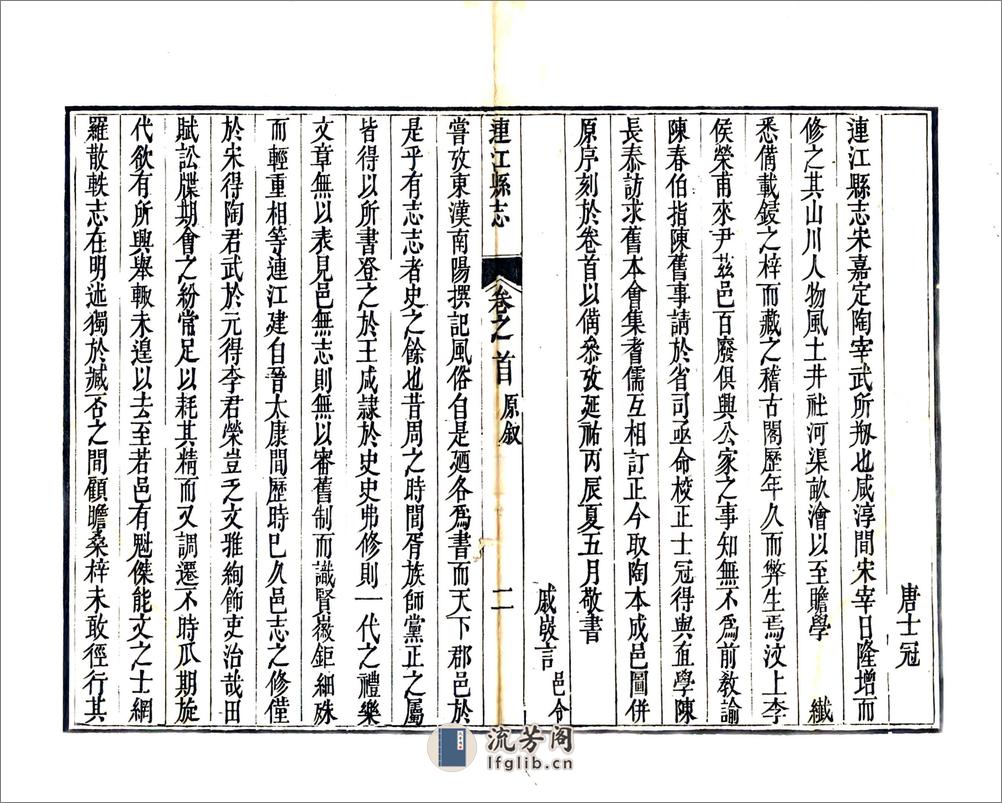 唐士冠
連江縣志宋嘉定陶宰武所刱也咸淳間宋宰日隆增而
修之其山川人物風土井社河渠畝澮以至贍學 纎
悉備載鋟之梓而藏之稽古閣歷年久而弊生焉汶上李
侯榮甫來尹茲邑百廢俱興公家之事知無不爲前教諭
陳春伯指陳舊事請於省司亟命校正士冠得與直學陳
長泰訪求舊本會集耆儒互相訂正今取陶本成邑圖併
原序刻於卷首以備叅攷延祐丙辰夏五月敬書
戚崚言邑令
連江縣志 卷之首 原敘 二
嘗攷東漢南陽撰記風俗自是廼各爲書而天下郡邑於
是乎有志志者史之餘也昔周之時閭胥族師黨正之屬
皆得以所書登之於王咸隷於史史弗修則一代之禮樂
文章無以表見邑無志則無以審舊制而識賢徽鉅細殊
而輕重相等連江建自晉太康間歷時已久邑志之修僅
於宋得陶君武於元得李君榮豈乏文雅絢飾吏治哉田
賦訟牒期會之紛常足以耗其精而又調遷不時瓜期旋
代欲有所興舉輙未遑以去至若邑有魁傑能文之士網
羅散軼志在明述獨於臧否之間顧瞻桑梓未敢徑行其
流芳阁
lfglib.cn